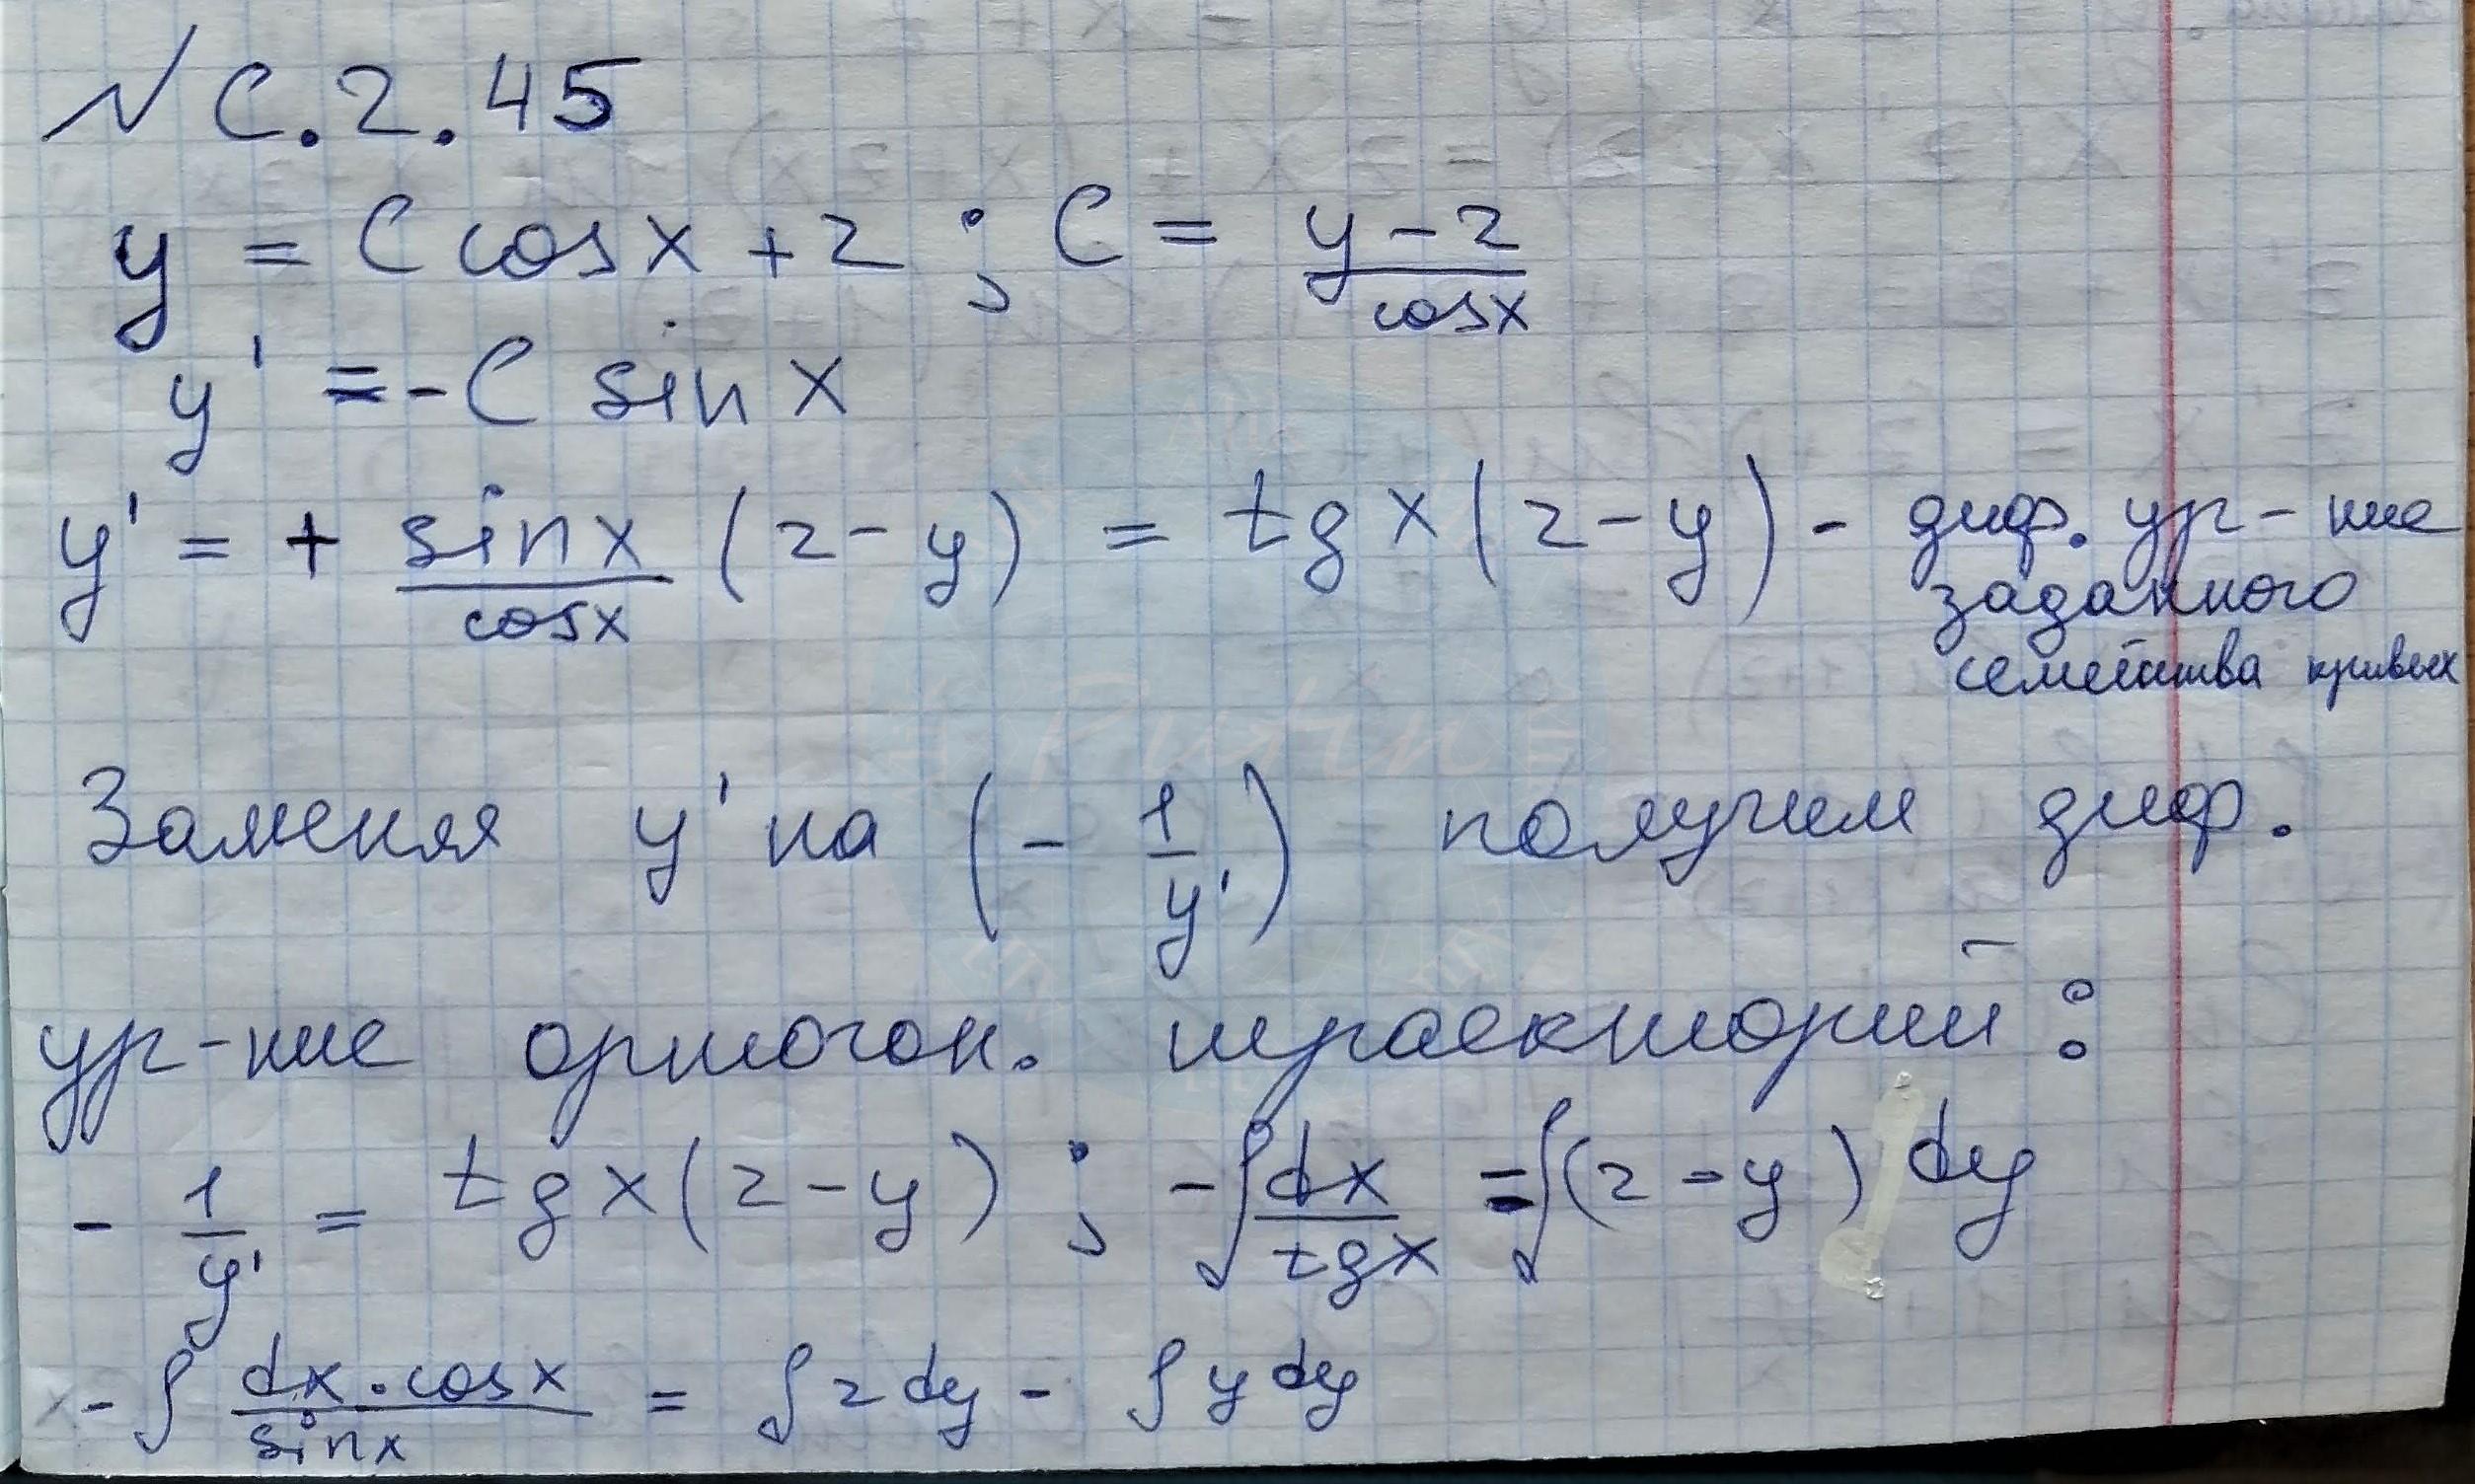 № C.2.45
y = C cos x + 2 ; C = (y - 2)/cos x
y' = -C sin x
y' = + sin x/cos x (2 - y) = tg x (2 - y) - диф. ур-ние
заданного
семейства кривых
Заменяя y' на (- 1/y') получим диф.
ур-ние ортогон. траекторий:
- 1/y' = tg x (2 - y) ; -∫ dx/tg x = ∫(2 - y) dy
-∫ dx · cos x/sin x = ∫ 2 dy - ∫ y dy